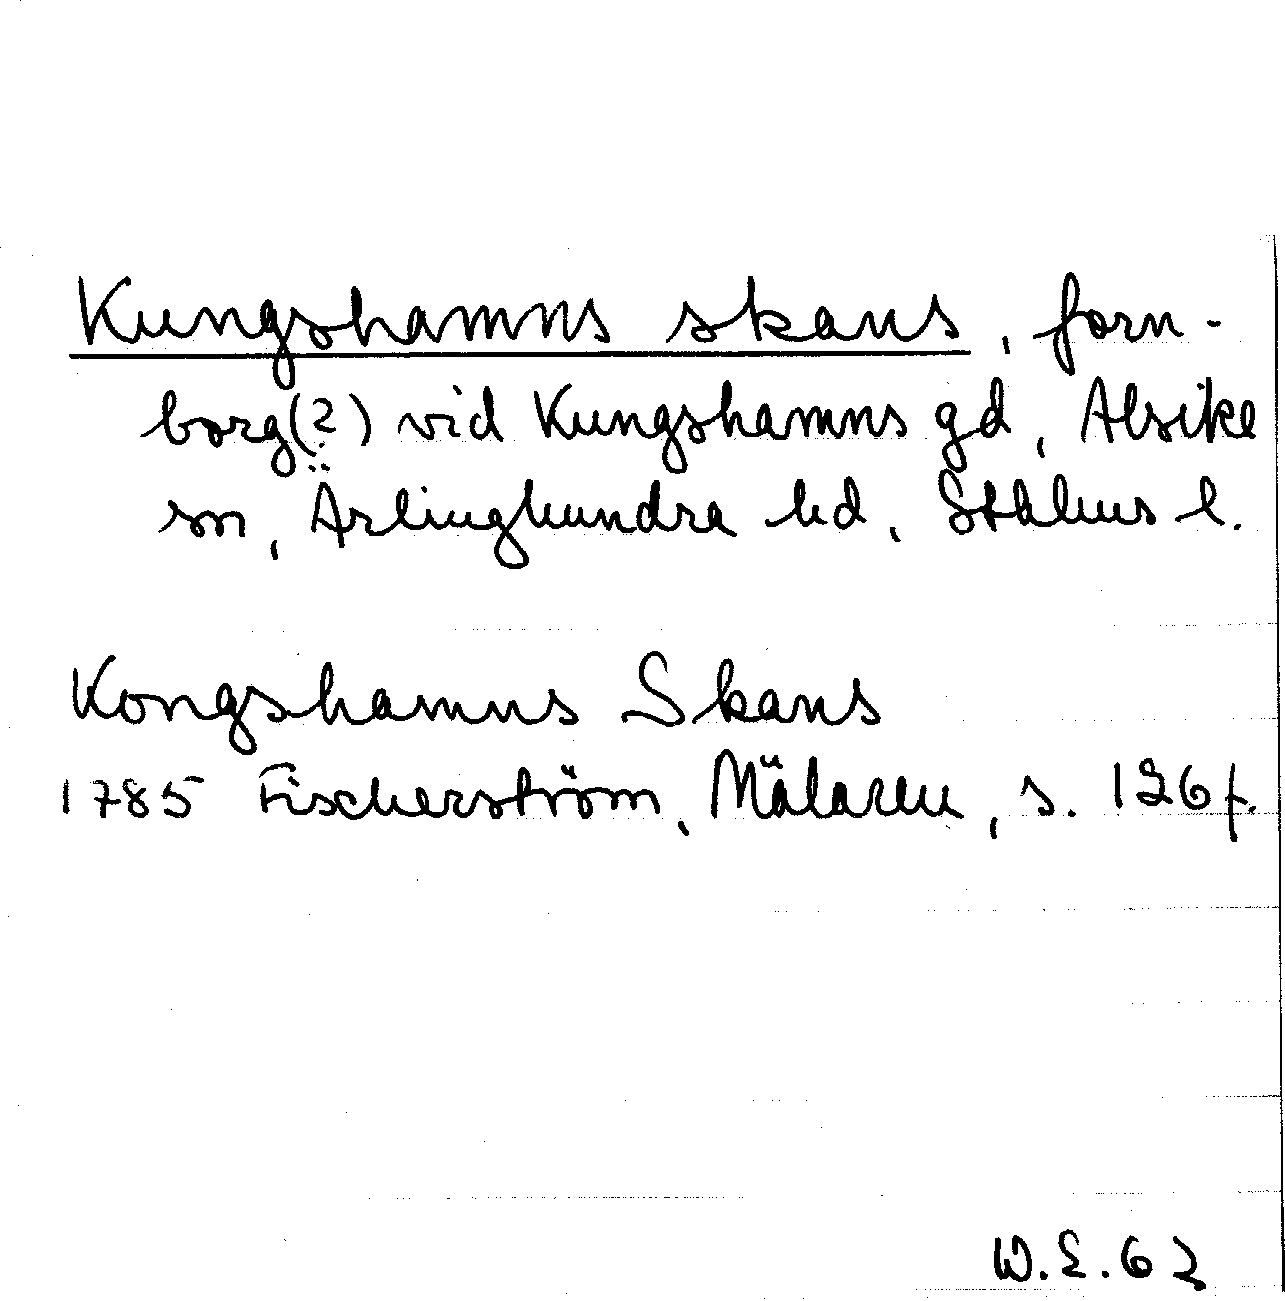 Kungshamns skans, forn-
borg(?) vid Kungshamns gd, Alsike
sn, Ärlinghundra hd, Sthlms l.
Kongshamns Skans
1785 Fischerström, Mälaren, s. 126f.
W.E.62